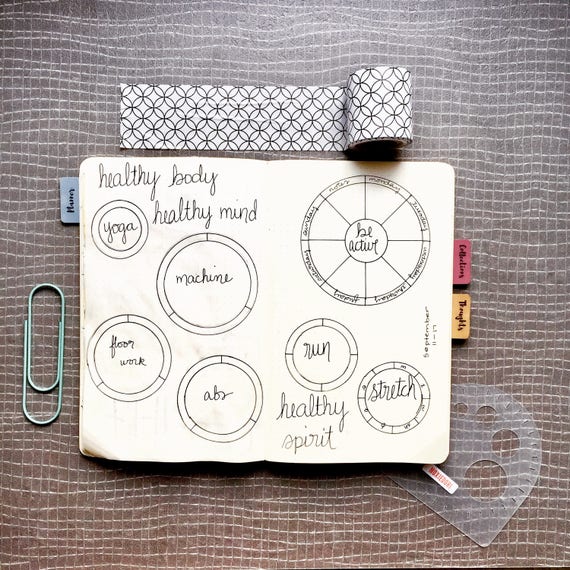 Planner
healthy body
healthy mind
yoga
machine
floor
work
abs
notes
monday
tuesday
wednesday
thursday
friday
saturday
sunday
be
active
September
11-17
run
stretch
healthy
spirit
Collections
Thoughts